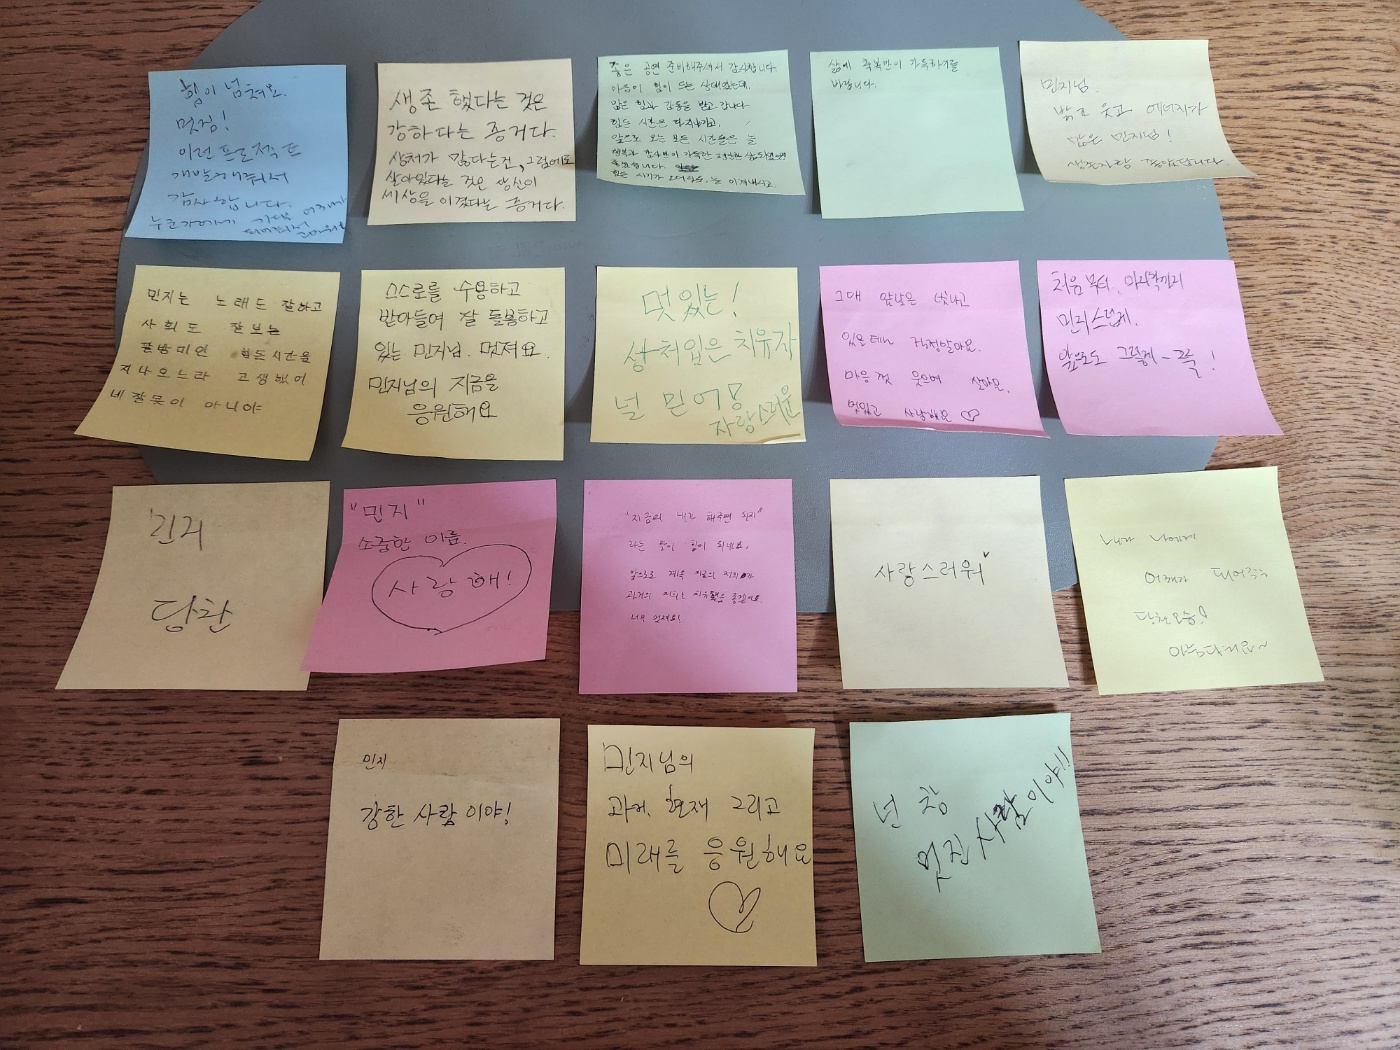 힘이 넘쳐요.
멋짐!
이런 프로젝트
개발해줘서
감사합니다.
누군가에게
생존 했다는 것은
강하다는 증거다.
상처가 많다는건, 그럼에도
살아있다는 것은 당신이
세상을 이겼다는 증거다.
좋은 공연 준비해주셔서 감사합니다.
마음이 힘이 드는 상태였는데,
많은 힘과 감동을 받고 갑니다.
힘든 시간은 다 지나가고,
앞으로 오는 모든 시간들은 늘
행복과 감사만이 가득한
힘든 시기가 오더라도, 늘 이겨내시고.
삶에 행복만이 가득하기를
바랍니다.
민지님.
밝고 웃고 에너지가
많은 민지님!
생존자랑 감사합니다.
민지는 노래도 잘하고
사회도 잘보는
팔방미인 힘든시간을
지나오느라 고생했어
네 잘못이 아니야
스스로를 수용하고
받아들여 잘 돌봄하고
있는 민지님. 멋져요.
민지님의 지금을
응원해요
멋있는!
상처입은 치유자
널 믿어!
자랑스러운
그대 앞날은 빛나고
있을테니 걱정말아요.
마음껏 웃으며 살아요.
멋있고 사랑해요 ♡
처음부터, 마지막까지
민지스럽게.
앞으로도 그렇게 - 쭉!
민지
당찬
"민지"
소중한 이름.
사랑해!
"지금의 내가 해주면 된다"
라는 말이 힘이 되네요.
앞으로 계속 지금의 민지가
과거의 민지는
너무 멋져요!
사랑스러워
내가 나에게
어깨가 되어주는
당찬모습!
아름다워요~
민지
강한 사람이야!
민지님의
과거, 현재 그리고
미래를 응원해요
♡
넌 참
멋진 사람이야!!